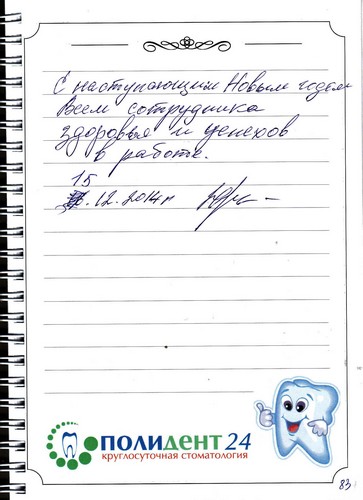 С наступающим Новым годом
Всем сотрудника
здоровья и успехов
в работе.
15
.12.2014г
ПОЛИДЕНТ 24
круглосуточная стоматология
83